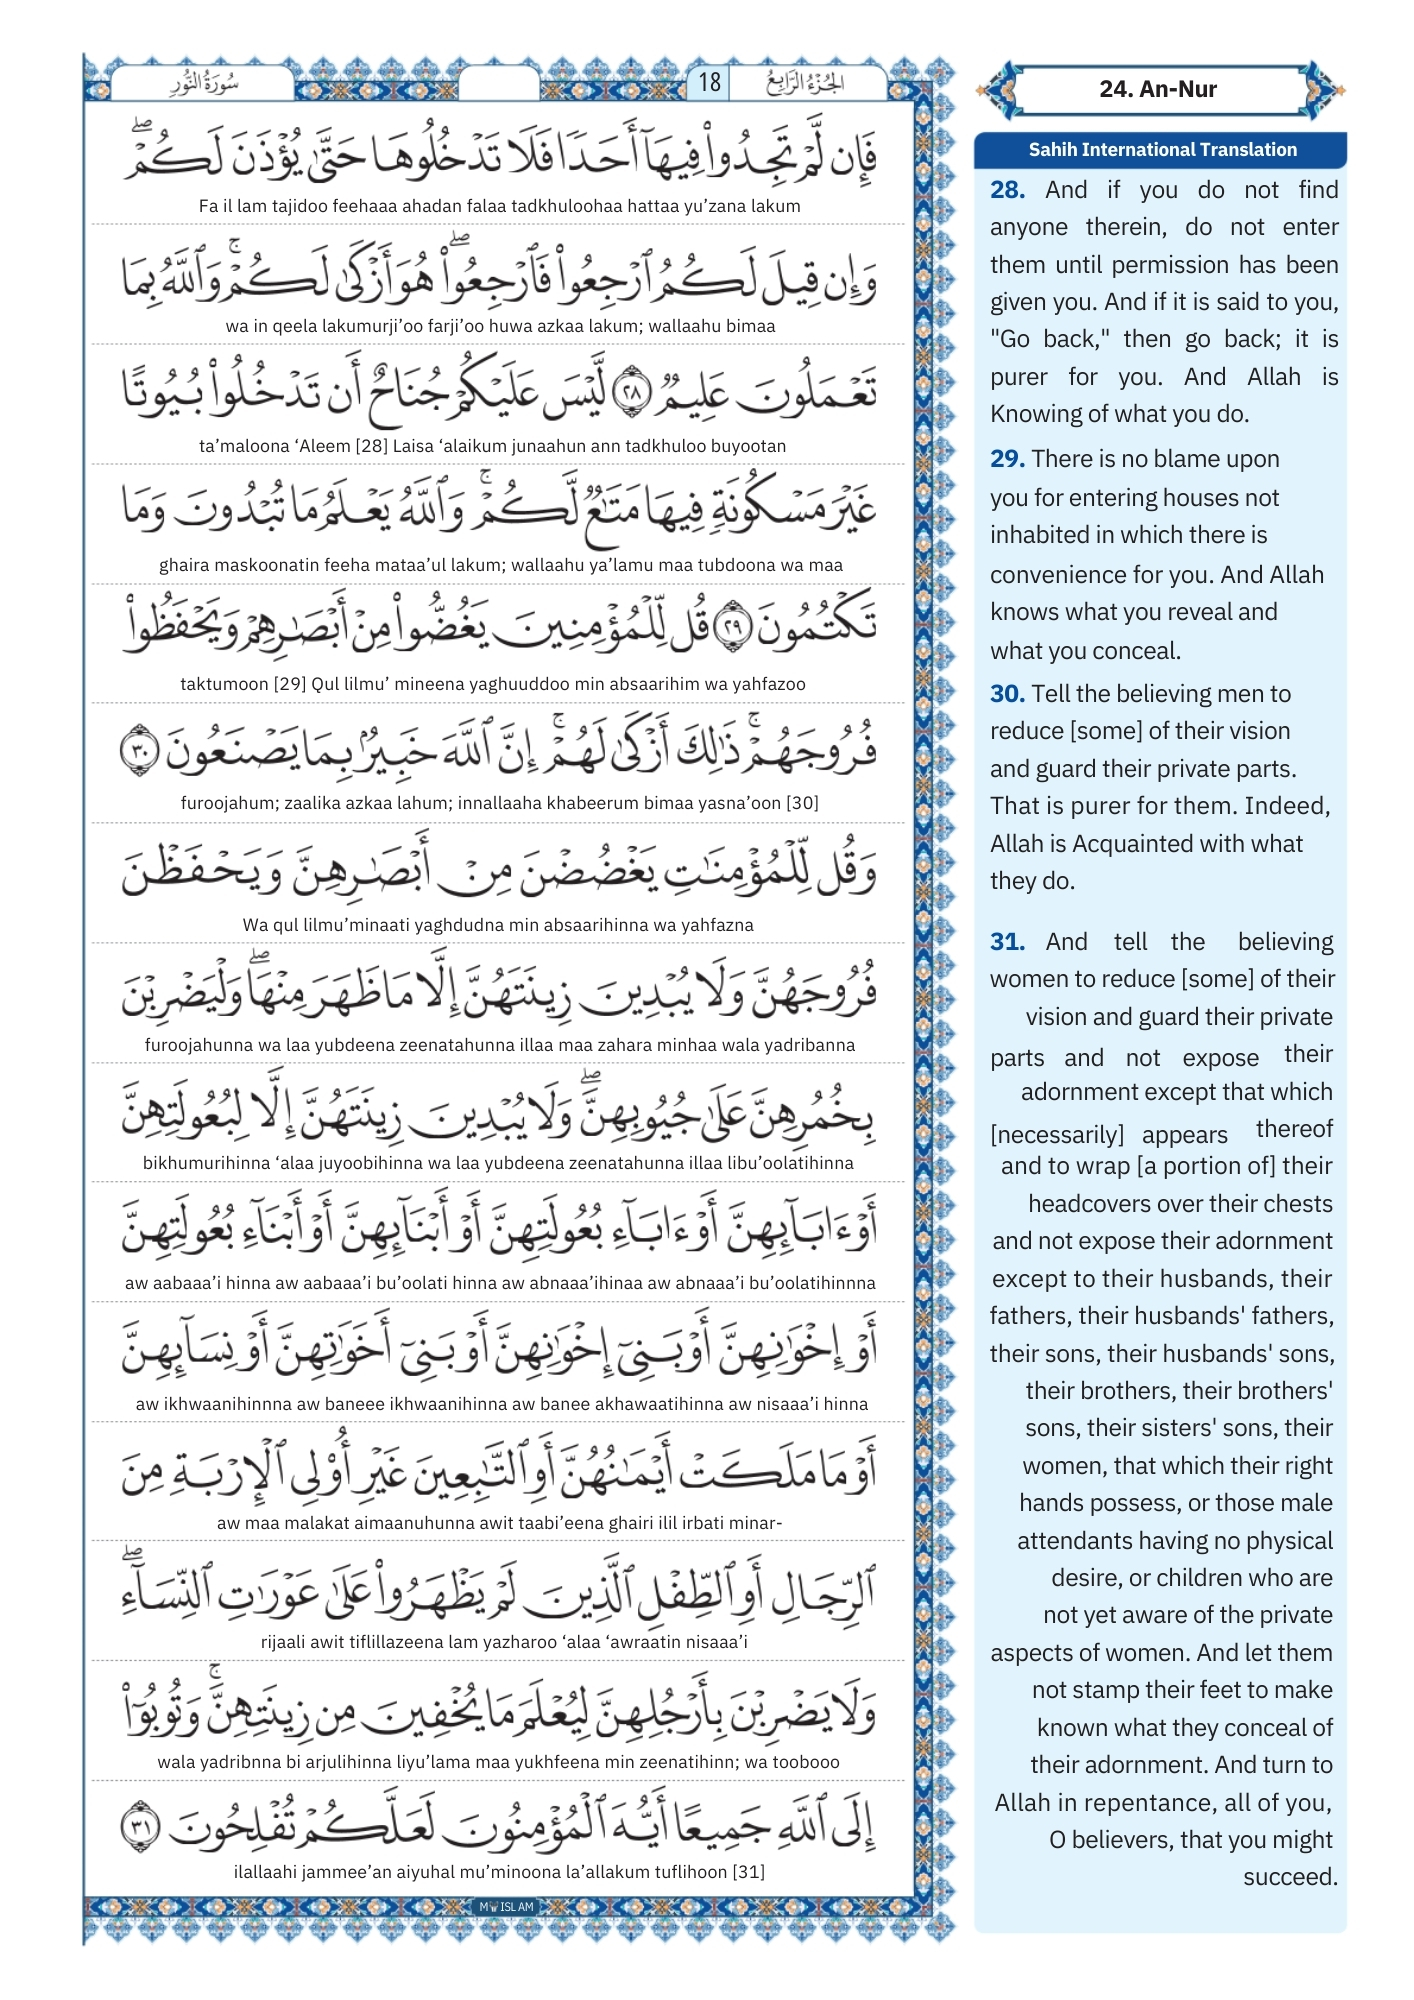 سُورَةُ النُّورِ
18
الجُزْءُ الرَّابِعُ
فَإِن لَّمْ تَجِدُوا۟ فِيهَآ أَحَدًا فَلَا تَدْخُلُوهَا حَتَّىٰ يُؤْذَنَ لَكُمْ ۖ
Fa il lam tajidoo feehaaa ahadan falaa tadkhuloohaa hattaa yu’zana lakum
وَإِن قِيلَ لَكُمُ ٱرْجِعُوا۟ فَٱرْجِعُوا۟ ۖ هُوَ أَزْكَىٰ لَكُمْ ۚ وَٱللَّهُ بِمَا
wa in qeela lakumurji’oo farji’oo huwa azkaa lakum; wallaahu bimaa
تَعْمَلُونَ عَلِيمٌ ٢٨ لَّيْسَ عَلَيْكُمْ جُنَاحٌ أَن تَدْخُلُوا۟ بُيُوتًا
ta’maloona ‘Aleem [28] Laisa ‘alaikum junaahun ann tadkhuloo buyootan
غَيْرَ مَسْكُونَةٍ فِيهَا مَتَـٰعٌ لَّكُمْ ۚ وَٱللَّهُ يَعْلَمُ مَا تُبْدُونَ وَمَا
ghaira maskoonatin feeha mataa’ul lakum; wallaahu ya’lamu maa tubdoona wa maa
تَكْتُمُونَ ٢٩ قُل لِّلْمُؤْمِنِينَ يَغُضُّوا۟ مِنْ أَبْصَـٰرِهِمْ وَيَحْفَظُوا۟
taktumoon [29] Qul lilmu’ mineena yaghuuddoo min absaarihim wa yahfazoo
فُرُوجَهُمْ ۚ ذَٰلِكَ أَزْكَىٰ لَهُمْ ۚ إِنَّ ٱللَّهَ خَبِيرٌۢ بِمَا يَصْنَعُونَ ٣٠
furoojahum; zaalika azkaa lahum; innallaaha khabeerum bimaa yasna’oon [30]
وَقُل لِّلْمُؤْمِنَـٰتِ يَغْضُضْنَ مِنْ أَبْصَـٰرِهِنَّ وَيَحْفَظْنَ
Wa qul lilmu’minaati yaghdudna min absaarihinna wa yahfazna
فُرُوجَهُنَّ وَلَا يُبْدِينَ زِينَتَهُنَّ إِلَّا مَا ظَهَرَ مِنْهَا ۖ وَلْيَضْرِبْنَ
furoojahunna wa laa yubdeena zeenatahunna illaa maa zahara minhaa wala yadribanna
بِخُمُرِهِنَّ عَلَىٰ جُيُوبِهِنَّ ۖ وَلَا يُبْدِينَ زِينَتَهُنَّ إِلَّا لِبُعُولَتِهِنَّ
bikhumurihinna ‘alaa juyoobihinna wa laa yubdeena zeenatahunna illaa libu’oolatihinna
أَوْ ءَابَآئِهِنَّ أَوْ ءَابَآءِ بُعُولَتِهِنَّ أَوْ أَبْنَآئِهِنَّ أَوْ أَبْنَآءِ بُعُولَتِهِنَّ
aw aabaaa’i hinna aw aabaaa’i bu’oolati hinna aw abnaaa’ihinaa aw abnaaa’i bu’oolatihinnna
أَوْ إِخْوَٰنِهِنَّ أَوْ بَنِىٓ إِخْوَٰنِهِنَّ أَوْ بَنِىٓ أَخَوَٰتِهِنَّ أَوْ نِسَآئِهِنَّ
aw ikhwaanihinnna aw baneee ikhwaanihinna aw banee akhawaatihinna aw nisaaa’i hinna
أَوْ مَا مَلَكَتْ أَيْمَـٰنُهُنَّ أَوِ ٱلتَّـٰبِعِينَ غَيْرِ أُو۟لِى ٱلْإِرْبَةِ مِنَ
aw maa malakat aimaanuhunna awit taabi’eena ghairi ilil irbati minar-
ٱلرِّجَالِ أَوِ ٱلطِّفْلِ ٱلَّذِينَ لَمْ يَظْهَرُوا۟ عَلَىٰ عَوْرَٰتِ ٱلنِّسَآءِ ۖ
rijaali awit tiflillazeena lam yazharoo ‘alaa ‘awraatin nisaaa’i
وَلَا يَضْرِبْنَ بِأَرْجُلِهِنَّ لِيُعْلَمَ مَا يُخْفِينَ مِن زِينَتِهِنَّ ۚ وَتُوبُوٓا۟
wala yadribnna bi arjulihinna liyu’lama maa yukhfeena min zeenatihinn; wa toobooo
إِلَى ٱللَّهِ جَمِيعًا أَيُّهَ ٱلْمُؤْمِنُونَ لَعَلَّكُمْ تُفْلِحُونَ ٣١
ilallaahi jammee’an aiyuhal mu’minoona la’allakum tuflihoon [31]
24. An-Nur
Sahih International Translation
28. And if you do not find
anyone therein, do not enter
them until permission has been
given you. And if it is said to you,
"Go back," then go back; it is
purer for you. And Allah is
Knowing of what you do.
29. There is no blame upon
you for entering houses not
inhabited in which there is
convenience for you. And Allah
knows what you reveal and
what you conceal.
30. Tell the believing men to
reduce [some] of their vision
and guard their private parts.
That is purer for them. Indeed,
Allah is Acquainted with what
they do.
31. And tell the believing
women to reduce [some] of their
vision and guard their private
parts and not expose their
adornment except that which
[necessarily] appears thereof
and to wrap [a portion of] their
headcovers over their chests
and not expose their adornment
except to their husbands, their
fathers, their husbands' fathers,
their sons, their husbands' sons,
their brothers, their brothers'
sons, their sisters' sons, their
women, that which their right
hands possess, or those male
attendants having no physical
desire, or children who are
not yet aware of the private
aspects of women. And let them
not stamp their feet to make
known what they conceal of
their adornment. And turn to
Allah in repentance, all of you,
O believers, that you might
succeed.